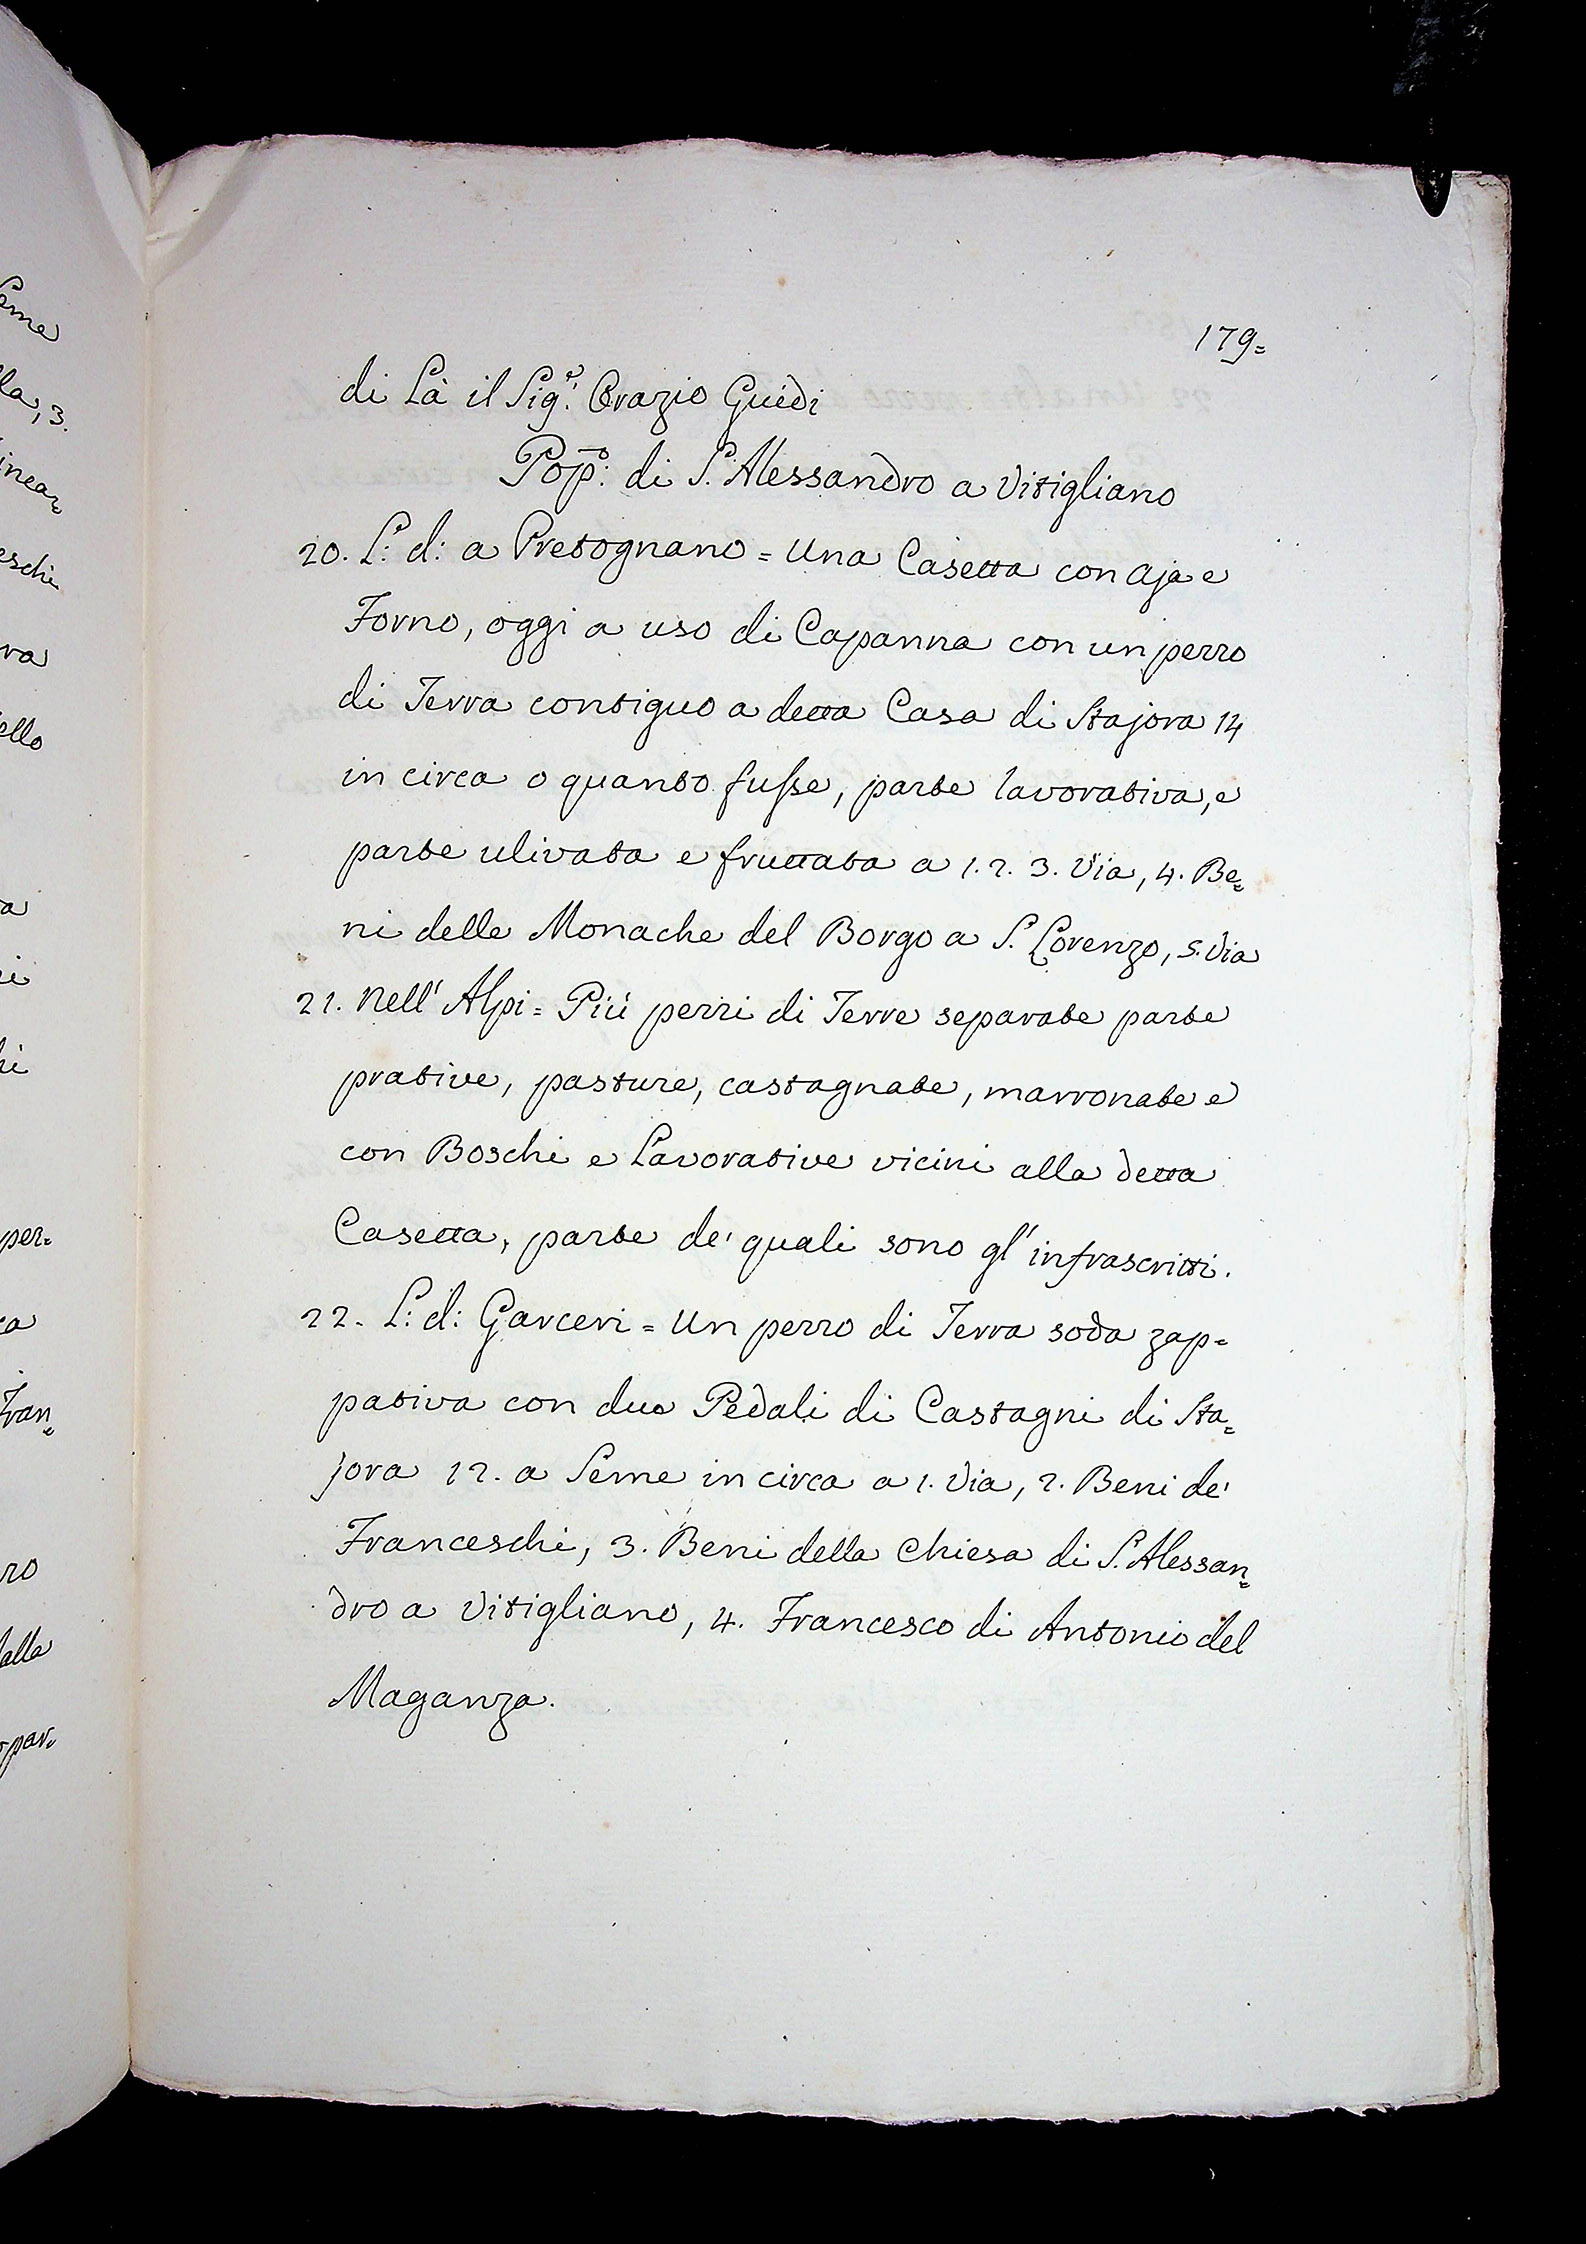 179=
di Là il Sig.e Orazio Guidi
Pop.o: di S. Alessandro a Vitigliano
20. L: d: a Pretognano = Una Casetta con Aja e
Forno, oggi a uso di Capanna con un pezzo
di Terra contiguo a detta Casa di Stajora 14
in circa o quanto fusse, parte lavorativa, e
parte ulivata e fruttata a 1. 2. 3. Via, 4. Be=
ni delle Monache del Borgo a S. Lorenzo, 5. Via
21. Nell' Alpi = Più pezzi di Terre separate parte
prative, pasture, castagnate, marronate e
con Boschi e Lavorative vicini alla detta
Casetta, parte de' quali sono gl' infrascritti.
22. L: d: Garceri = Un pezzo di Terra soda zap=
pativa con due Pedali di Castagni di Sta=
jora 12. a Seme in circa a 1. Via, 2. Beni de'
Franceschi, 3. Beni della Chiesa di S. Alessan=
dro a Vitigliano, 4. Francesco di Antonio del
Maganza.